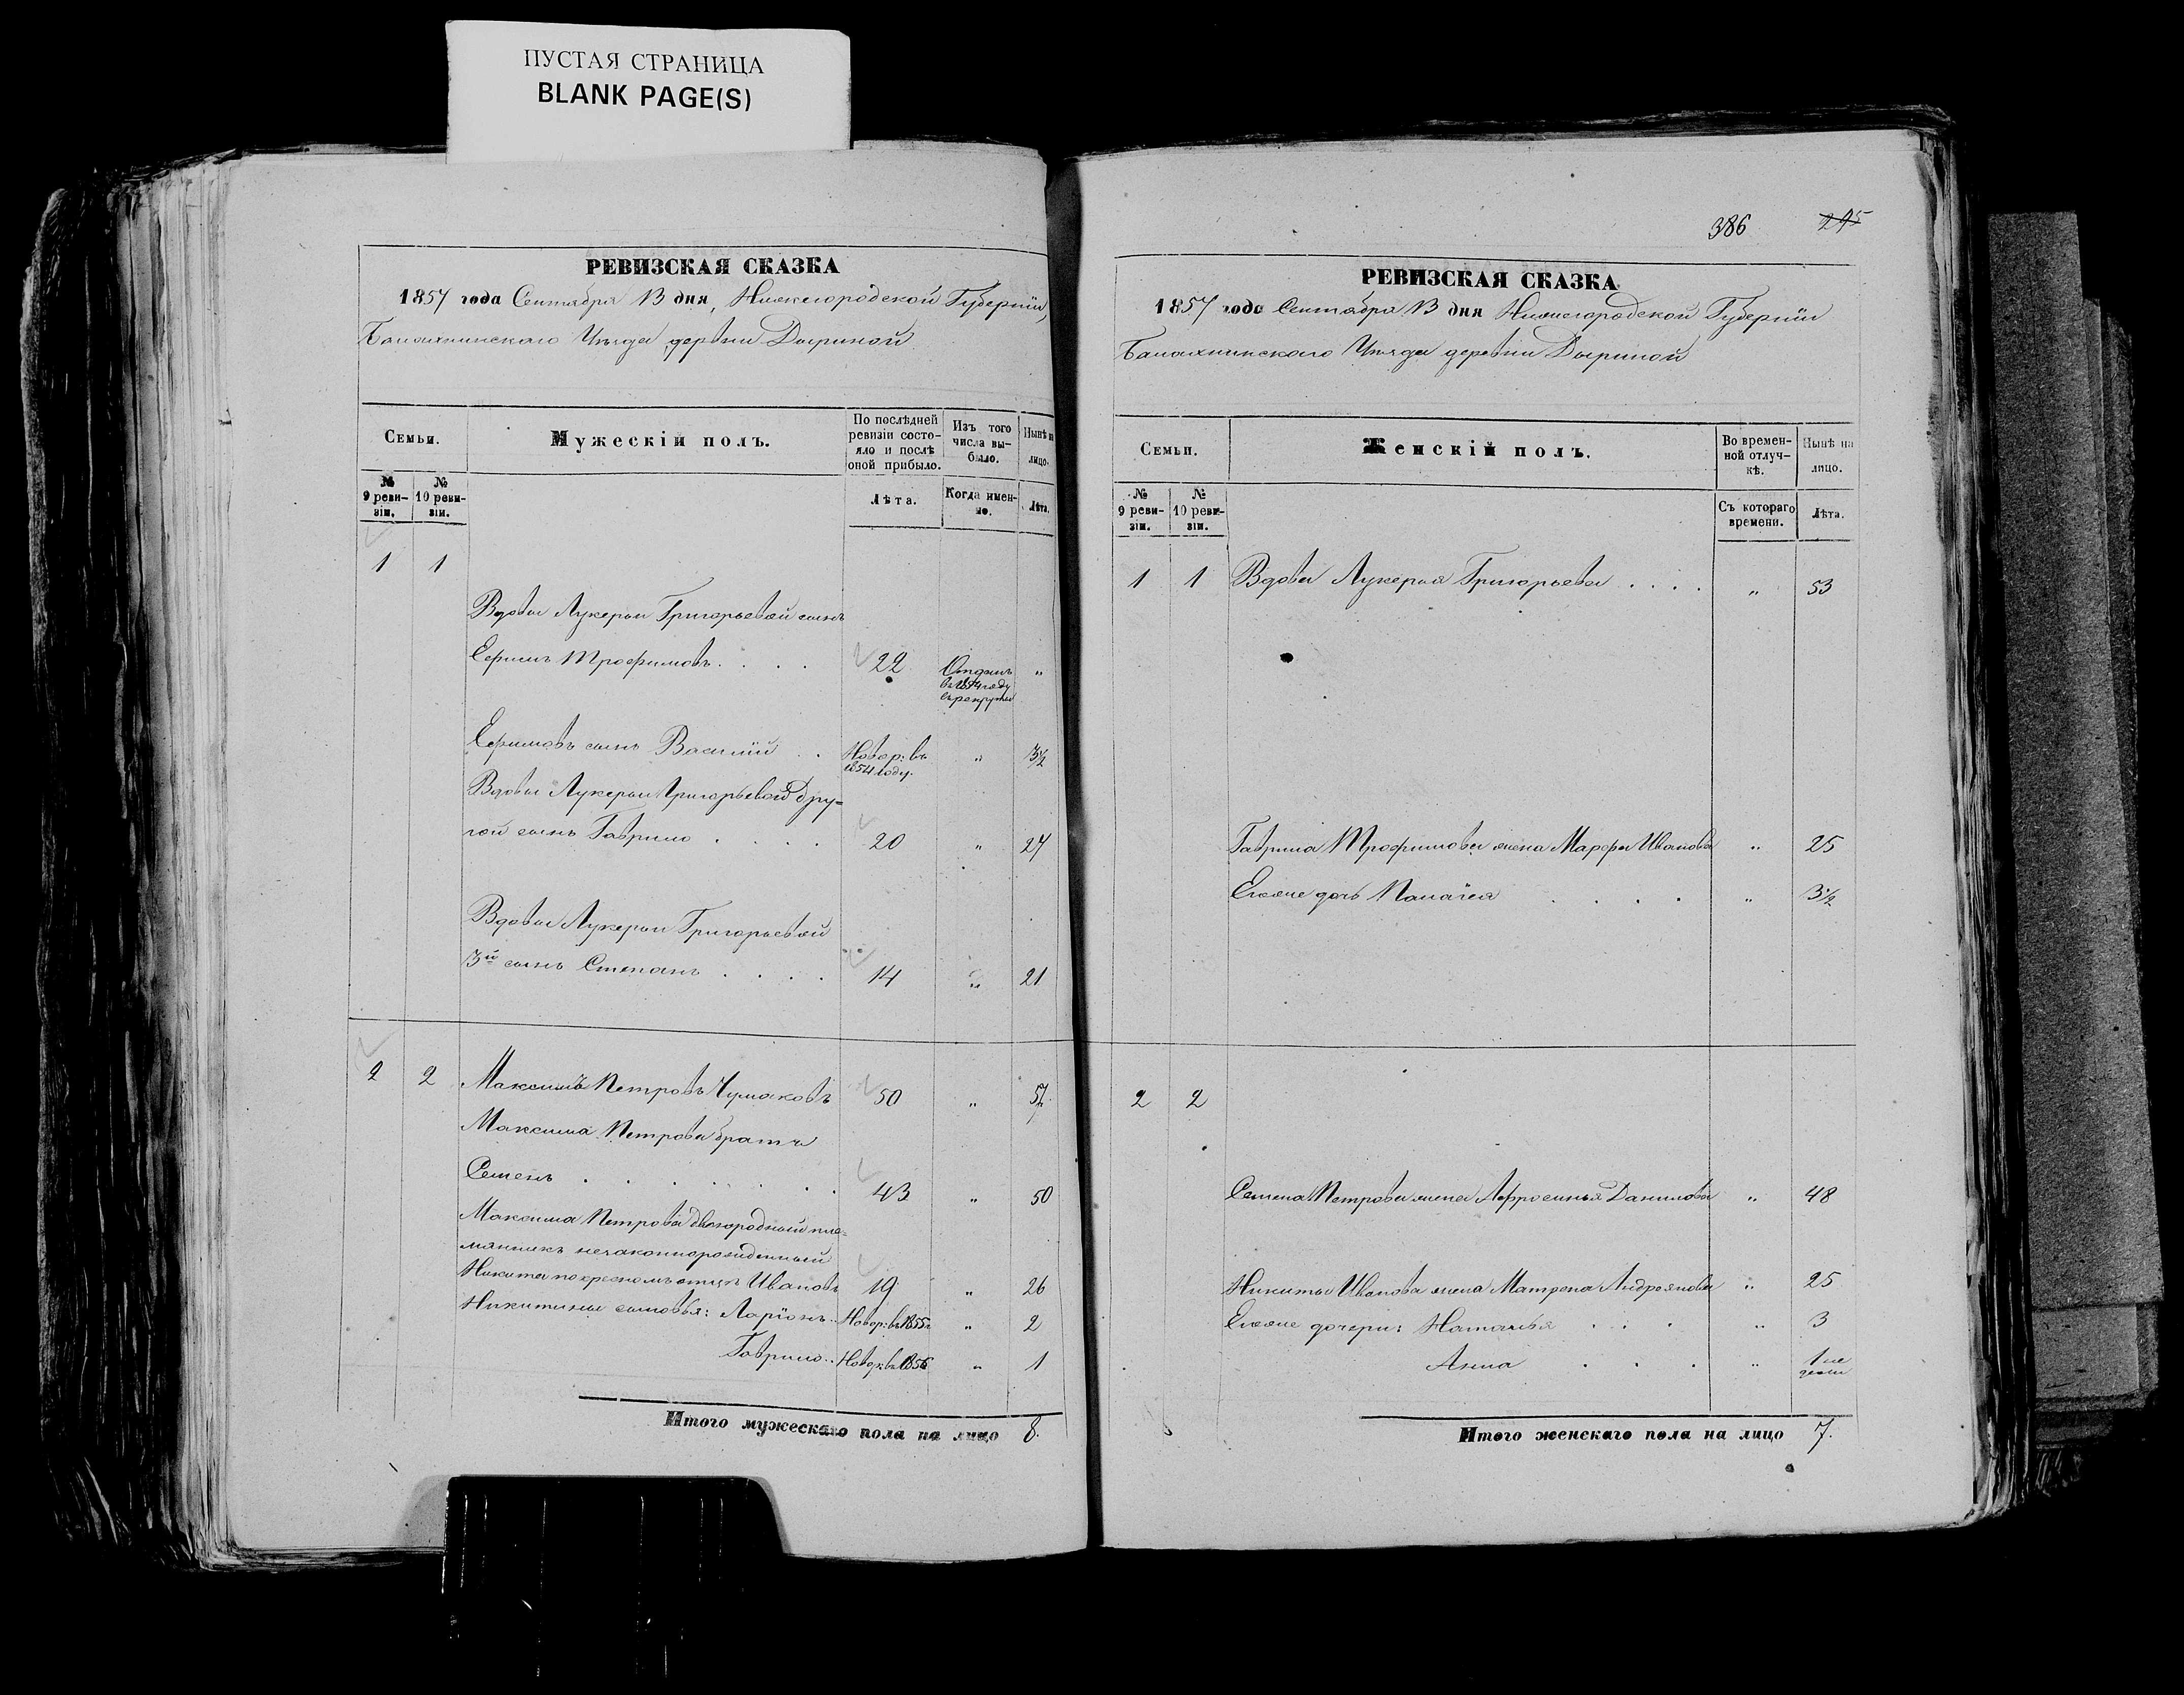 ПУСТАЯ СТРАНИЦА
BLANK PAGE(S)
РЕВИЗСКАЯ СКАЗКА
1857 года Сентября 13 дня, Нижегородской Губернiи,
Балахнинскаго Уѣзда деревни Дыриной
Семьи.
Мужескiй полъ.
По послѣдней ревизiи состояло и послѣ оной прибыло.
Изъ того числа выбыло.
Нынѣ на лицо.
№ 9 ревизiи.
№ 10 ревизiи.
Лѣта.
Когда именно.
Лѣта.
1 1
Вдовы Лукерьи Григорьевой сынъ
Ефимъ Трофимовъ. . . . 22 Отданъ в 1854 году в рекруты "
Ефимовъ сынъ Василiй . . Новор: въ 1854 году. " 3½
Вдовы Лукерьи Григорьевой дру=
гой сынъ Гаврило . . . . 20 " 27
Вдовы Лукерьи Григорьевой
3й сынъ Степанъ . . . . 14 " 21
2 2 Максимъ Петровъ Чумаковъ 50 " 57
Максима Петрова братъ
Семенъ . . . . . . 43 " 50
Максима Петрова двоюродный пле=
мянникъ незаконнорожденный
Никита по кресном отцѣ Ивановъ 19 " 26
Никитины сыновья: Ларiонъ.. Новор: въ 1855 г " 2
Гаврило.. Новор: въ 1856 " 1
Итого мужескаго пола на лицо 8.
386 295
РЕВИЗСКАЯ СКАЗКА
1857 года Сентября 13 дня Нижегородской Губернiи
Балахнинскаго Уѣзда деревни Дыриной
Семьи.
Женскiй полъ.
Во временной отлучкѣ.
Нынѣ на лицо.
№ 9 ревизiи.
№ 10 ревизiи.
Съ котораго времени.
Лѣта.
1 1 Вдова Лукерья Григорьева . . . . " 53
Гаврила Трофимова жена Марфа Иванова " 25
Егоже дочь Палагея . . . . " 3½
2 2
Семена Петрова жена Афросинья Данилова " 48
Никиты Иванова жена Матрена Андроянова " 25
Егоже дочери: Наталья . . . " 3
Анна . . . " 1
Итого женскаго пола на лицо 7.